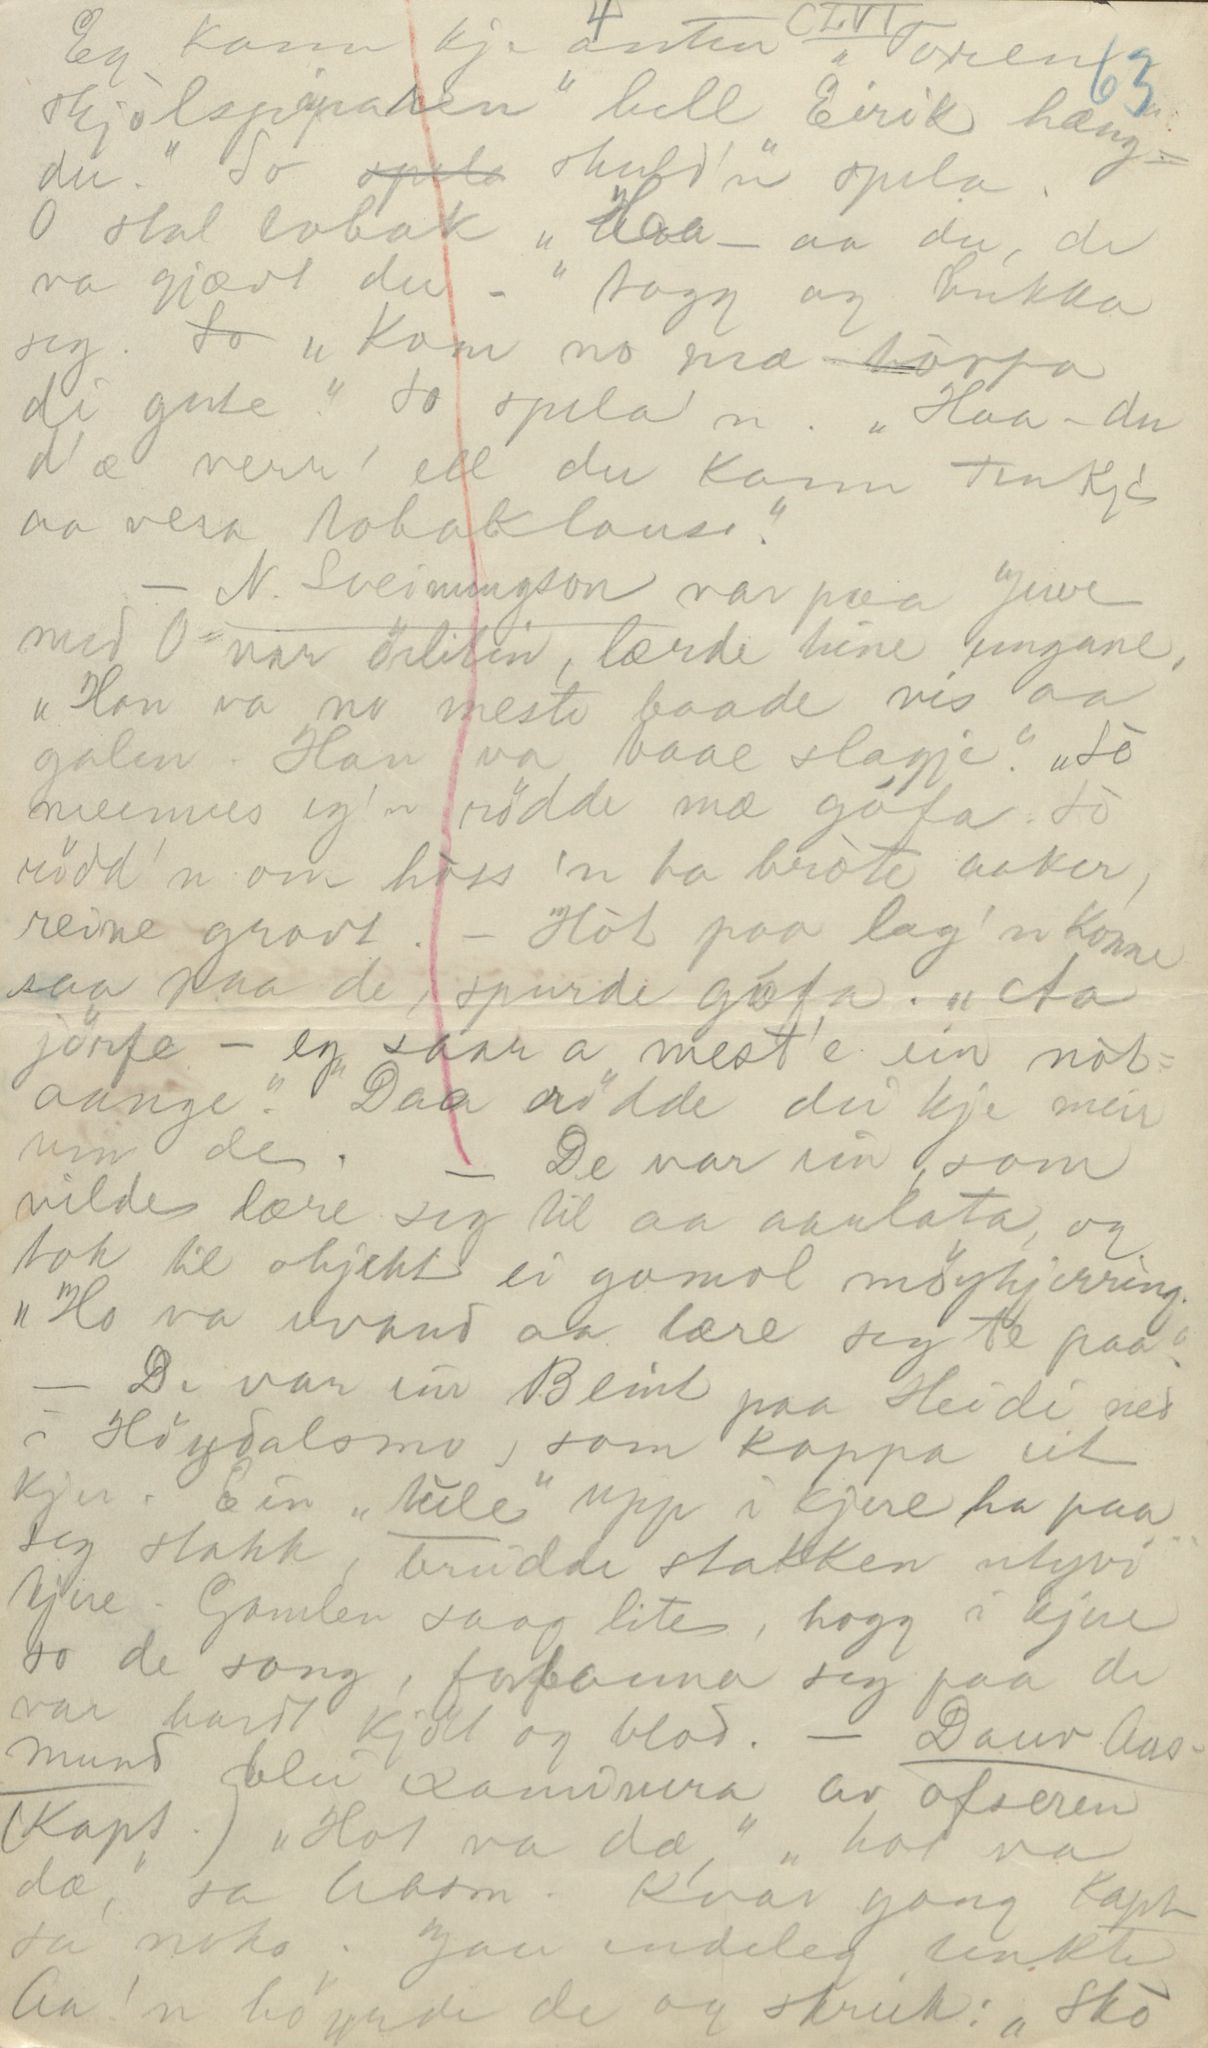 4 CLVI 63
Eg kann kje anten "Toren
skjölspiparen" hell Eirik hæng-
du." So spela skuld'n spela.
O stal tobak "Haa - aa du, de
va gjævt du -" togg og bukka
seg. So "Kom no mæ hörpa
di gute." So spela'n. "Haa - du
d'æ verr' ell du kann tenkje
aa vera tobaklause."
- N. Sveinungson var paa Juve
med O= var örliten, lærde hine ungane,
"Han va no meste baade vis aa
galen. Han va baae slagje." "So
meenues eg'n rödde mæ gófa. So
rödd'n om hòss'n ha bròte aaker,
reine grovt. - Hòt paa lag'n konne
saa paa de, spurde gófa. "Aa
jörfe - eg saar a mest'e ein nòt=
aange." Daa rödde dei kje meir
um de. - De var ein, som
vilde lære seg til aa aarlata, og
tok til objekt ei gomol möykjerring.
"Ho va uvand aa lære seg te paa".
- De var ein Beint paa Heidi ned
i Höydalsmo, som koppa ut
kjer. Ein "tule" upp i kjere ha paa
seg stakk, breidde stakken utyvi
kjere. Gamlen saag lite, hogg i kjere
so de song, forbanna seg paa de
var hardt kjöt og blod. - Dauv Aas-
mund blei examinera av ofseren
(Kapt.) "Hot va dæ," "hot va
dæ," sa Aasm. Kvar gong Kapt
sa noko. Jau endeleg tenkte
Aa'n höyrde de og skreik: "Skò